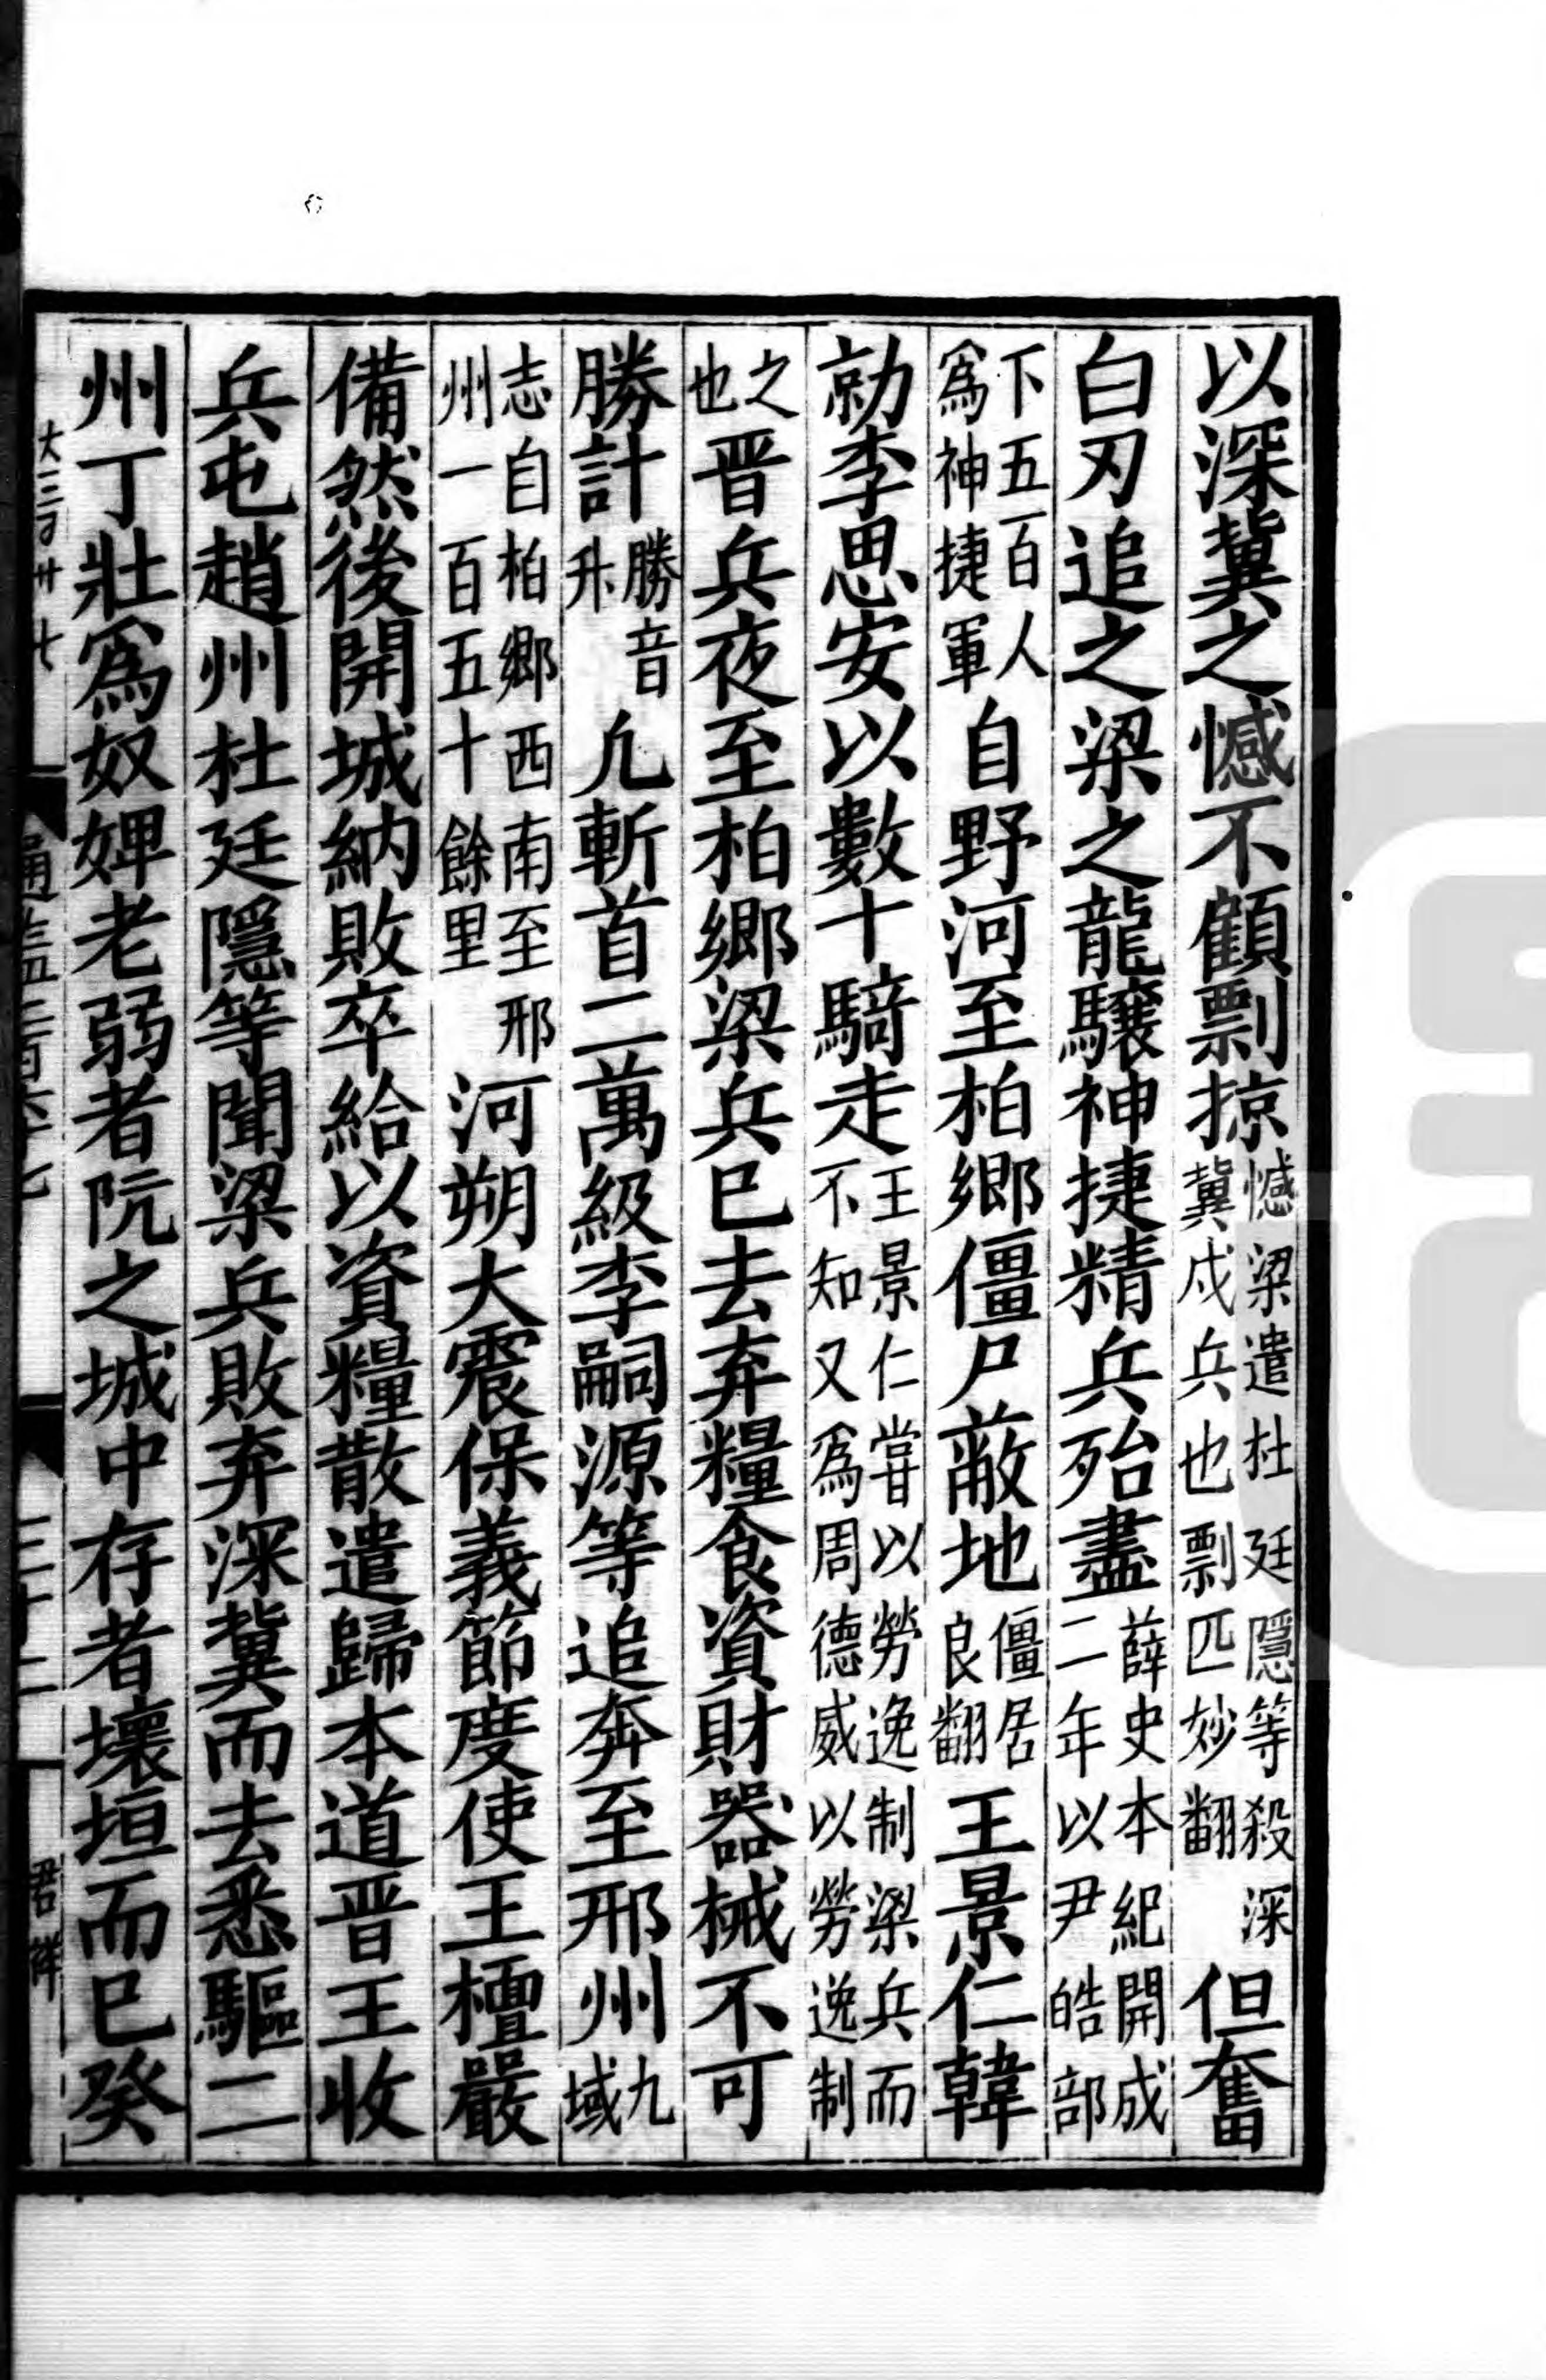 以深冀之憾不顧剽掠憾梁遣杜廷隱等殺深冀戍兵也剽匹妙翻但奮
白刃追之梁之龍驤神捷精兵殆盡薛史本紀開成二年以尹皓部
下五百人爲神捷軍自野河至柏鄉僵尸蔽地僵居良翻王景仁韓
勍李思安以數十騎走王景仁嘗以勞逸制梁兵而不知又爲周德威以勞逸制
之也晉兵夜至柏鄉梁兵已去弃糧食資財器械不可
勝計勝音升凢斬首二萬級李嗣源等追奔至邢州九域
志自柏鄉西南至邢州一百五十餘里河朔大震保義節度使王檀嚴
備然後開城納敗卒給以資糧散遣歸本道晉王收
兵屯趙州杜廷隱等聞梁兵敗弃深冀而去悉驅二
州丁壯爲奴婢老弱者阬之城中存者壞垣而已癸